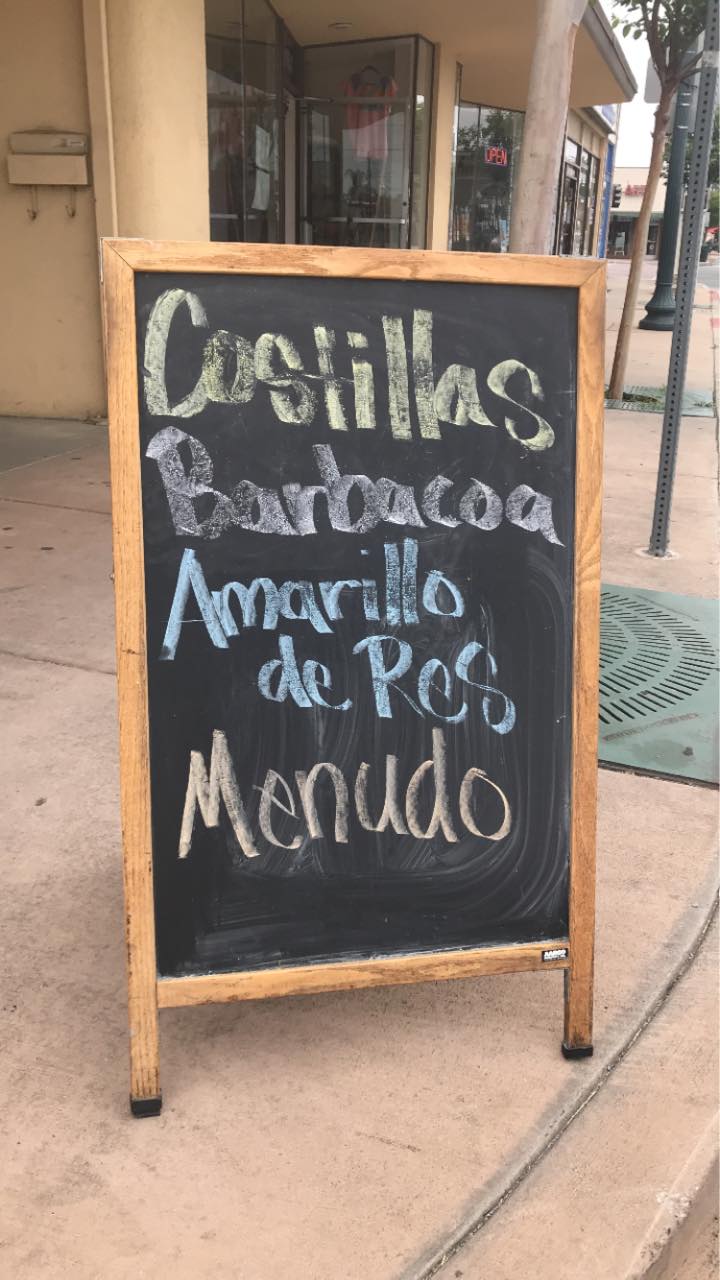 OPEN
Costillas
Barbacoa
Amarillo
de Res
Menudo
AARCO